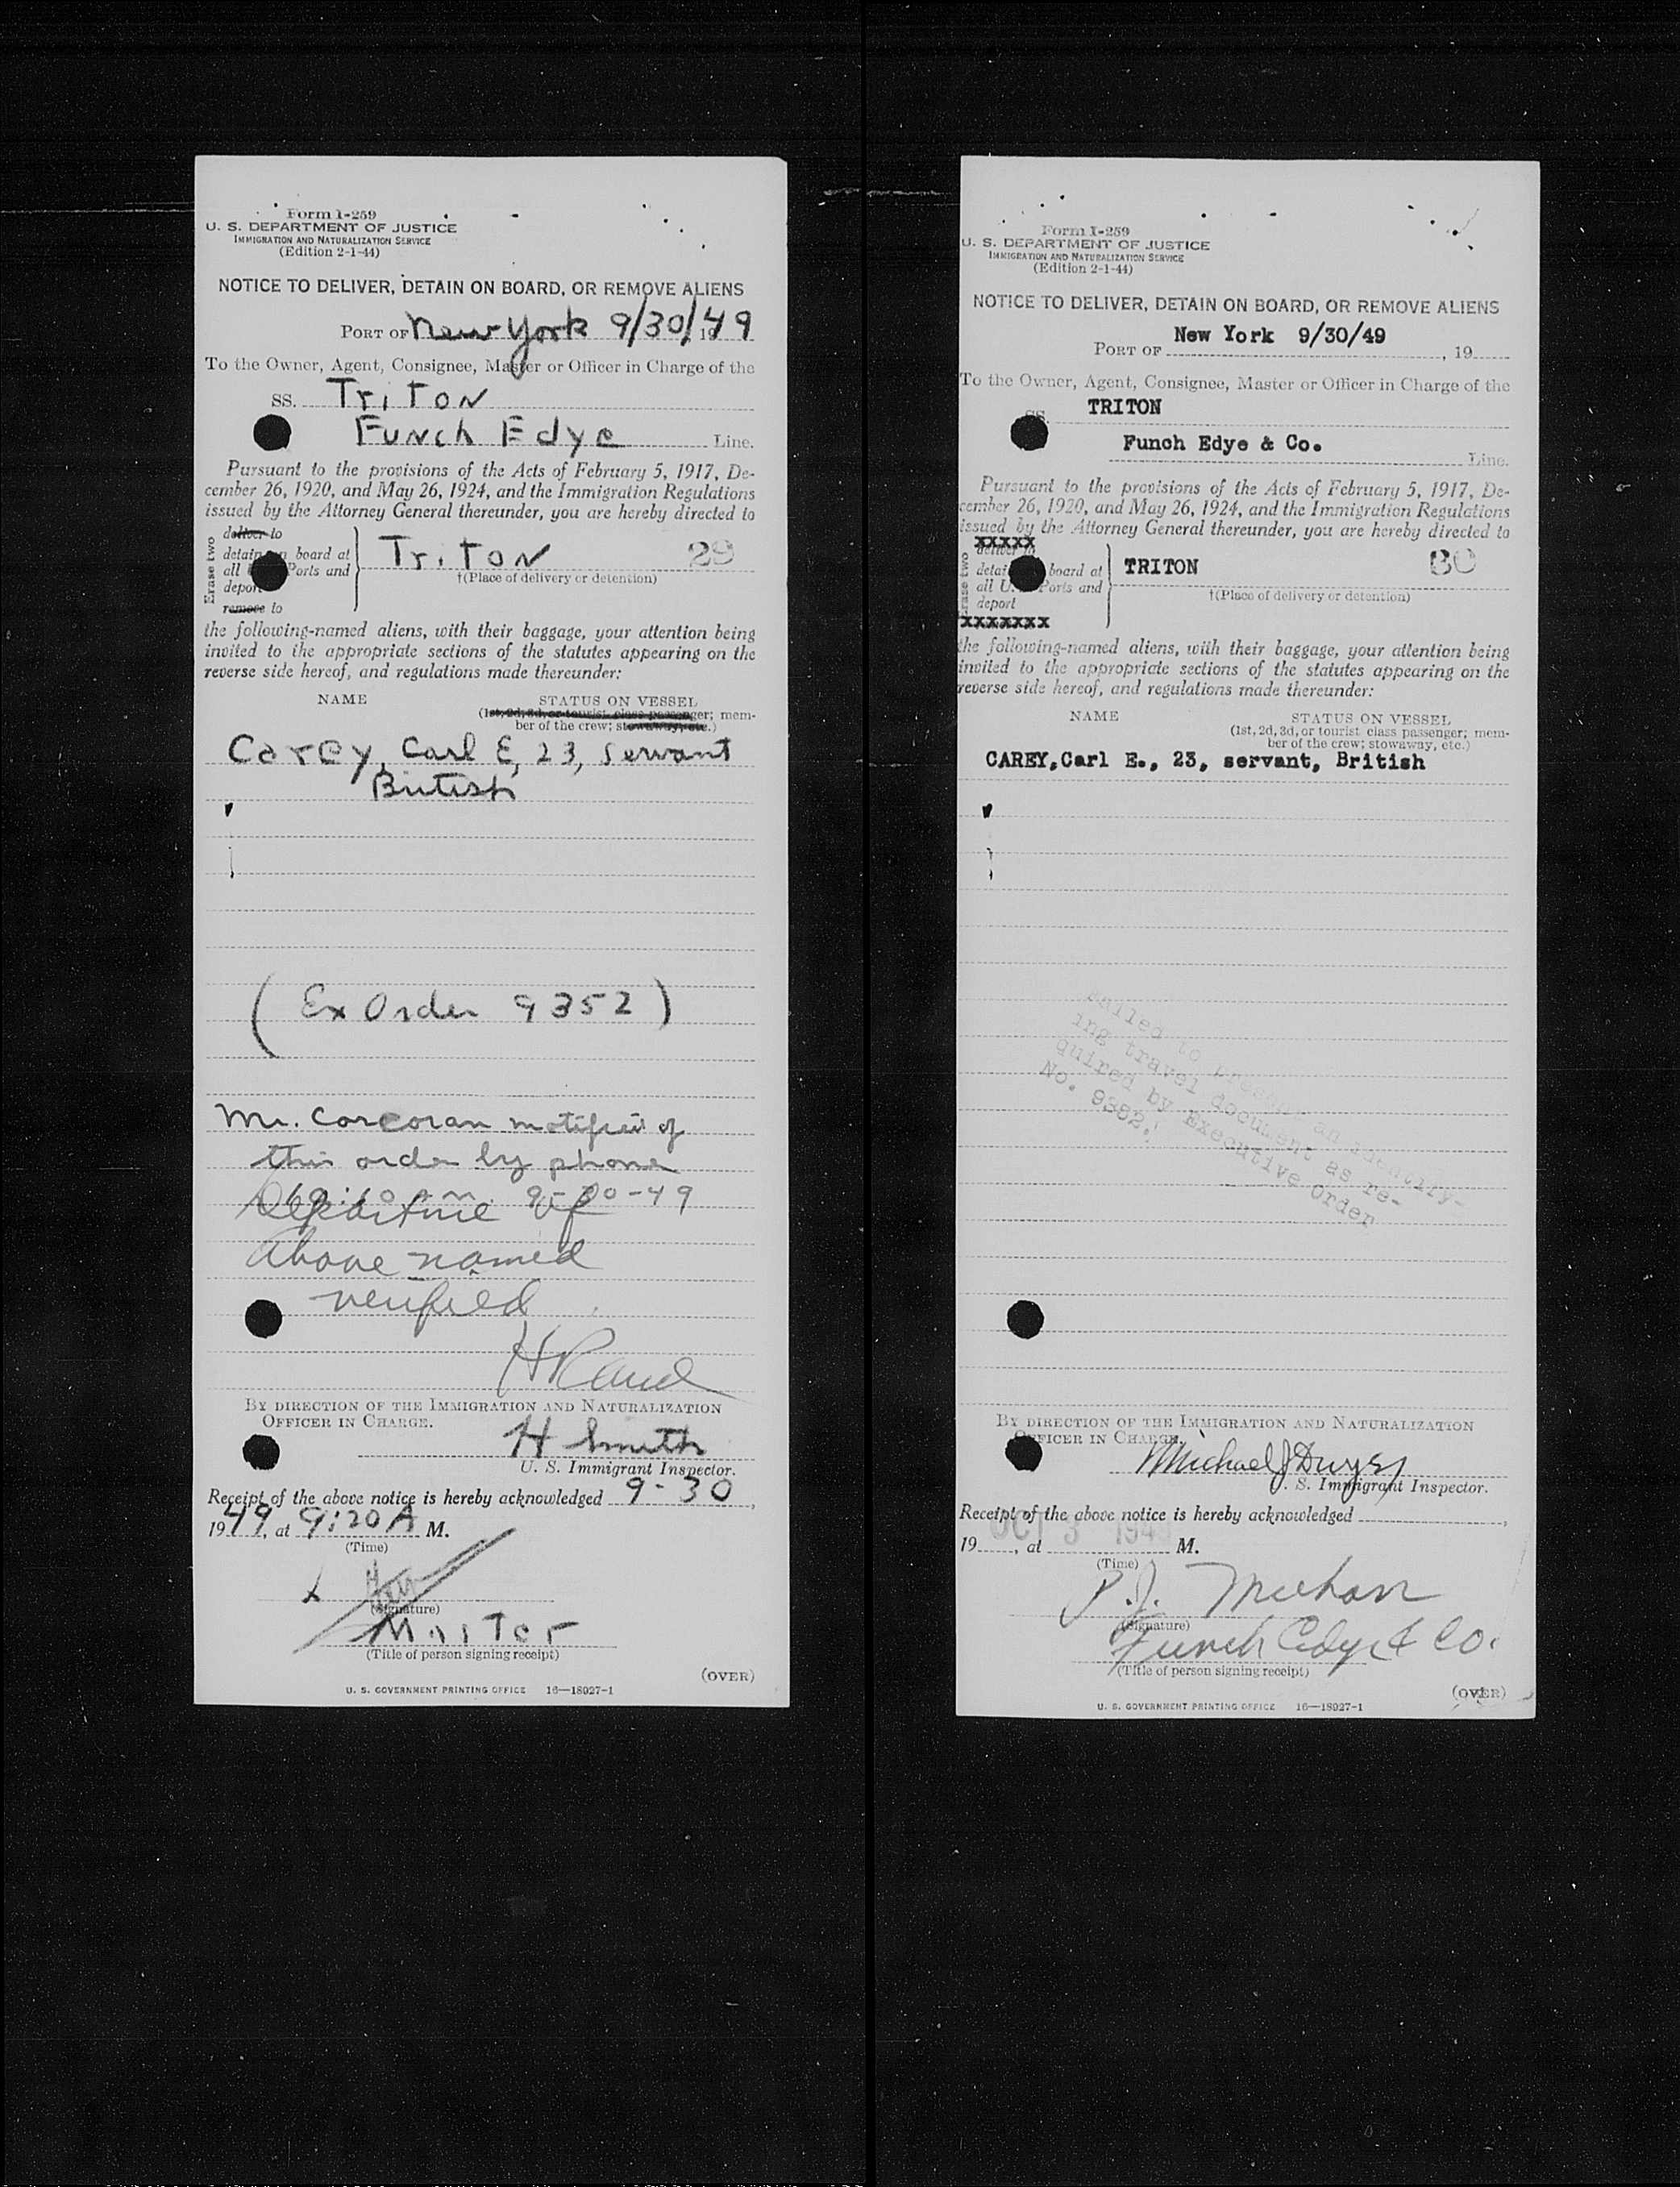 Form I-259
U. S. DEPARTMENT OF JUSTICE
IMMIGRATION AND NATURALIZATION SERVICE
(Edition 2-1-44)
NOTICE TO DELIVER, DETAIN ON BOARD, OR REMOVE ALIENS
PORT OF New York 9/30/1949
To the Owner, Agent, Consignee, Master or Officer in Charge of the
SS. Triton
Funch Edye Line.
Pursuant to the provisions of the Acts of February 5, 1917, De-
cember 26, 1920, and May 26, 1924, and the Immigration Regulations
issued by the Attorney General thereunder, you are hereby directed to
Erase two
deliver to
detain on board at
all Ports and
deport
remove to
Triton 29
†(Place of delivery or detention)
the following-named aliens, with their baggage, your attention being
invited to the appropriate sections of the statutes appearing on the
reverse side hereof, and regulations made thereunder:
NAME STATUS ON VESSEL
(1st, 2d, 3d, or tourist class passenger; mem-
ber of the crew; stowaway, etc.)
Carey, Carl E, 23, servant
British
(Ex Order 9352)
Mr. Corcoran notified of
this order by phone
9-30-49
Departure of
above named
verified
H Rand
BY DIRECTION OF THE IMMIGRATION AND NATURALIZATION
OFFICER IN CHARGE.
H Smith
U. S. Immigrant Inspector.
Receipt of the above notice is hereby acknowledged 9-30,
1949, at 9:20 A M.
(Time)
X
(Signature)
Master
(Title of person signing receipt)
(OVER)
U. S. GOVERNMENT PRINTING OFFICE 16—18927-1
Form I-259
U. S. DEPARTMENT OF JUSTICE
IMMIGRATION AND NATURALIZATION SERVICE
(Edition 2-1-44)
NOTICE TO DELIVER, DETAIN ON BOARD, OR REMOVE ALIENS
New York 9/30/49
PORT OF , 19
To the Owner, Agent, Consignee, Master or Officer in Charge of the
SS. TRITON
Funch Edye & Co.
Line.
Pursuant to the provisions of the Acts of February 5, 1917, De-
cember 26, 1920, and May 26, 1924, and the Immigration Regulations
issued by the Attorney General thereunder, you are hereby directed to
Erase two
XXXXX
deliver to
detain board at
all U. Ports and
deport
XXXXXXX
TRITON 30
†(Place of delivery or detention)
the following-named aliens, with their baggage, your attention being
invited to the appropriate sections of the statutes appearing on the
reverse side hereof, and regulations made thereunder:
NAME STATUS ON VESSEL
(1st, 2d, 3d, or tourist class passenger; mem-
ber of the crew; stowaway, etc.)
CAREY,Carl E., 23, servant, British
Failed to present an identify-
ing travel document as re-
quired by Executive Order
No. 9352.
BY DIRECTION OF THE IMMIGRATION AND NATURALIZATION
OFFICER IN CHARGE.
Michael J Dwyer
U. S. Immigrant Inspector.
Receipt of the above notice is hereby acknowledged ,
OCT 3 194
19 , at M.
(Time)
P. J. Meehan
(Signature)
Funch Edye & Co.
(Title of person signing receipt)
(OVER)
U. S. GOVERNMENT PRINTING OFFICE 16—18927-1